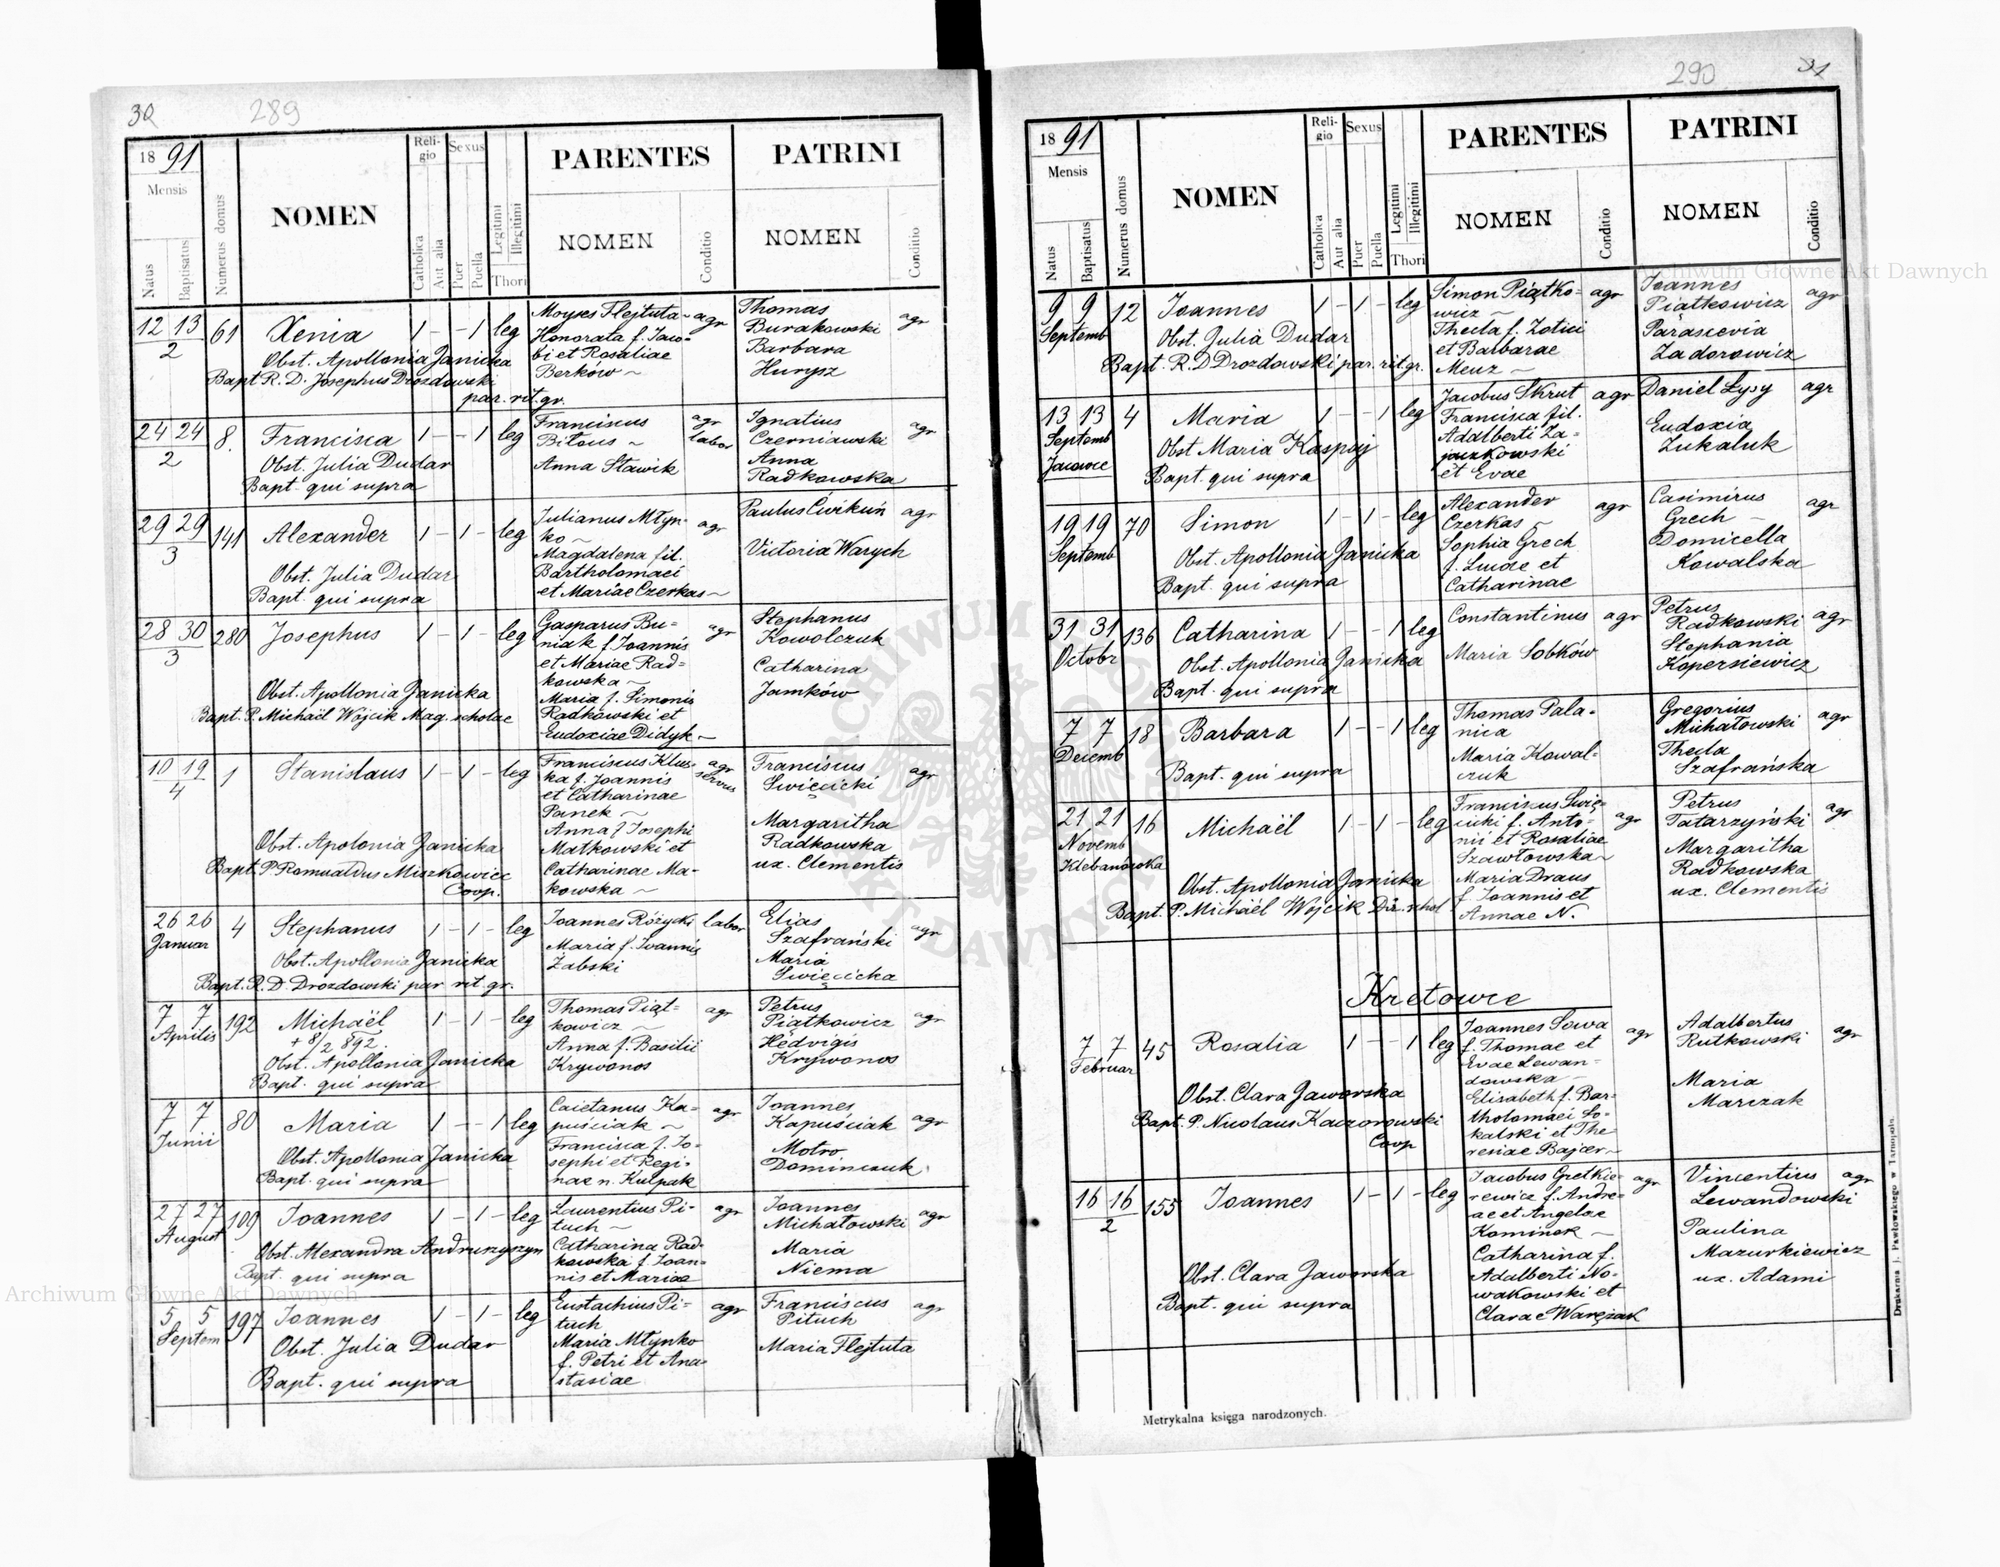 30 289
1891
Mensis
Natus
Baptisatus
Numerus domus
NOMEN
Reli-
gio
Catholica
Aut alia
Sexus
Puer
Puella
Legitimi
Illegitimi
Thori
PARENTES
NOMEN
Conditio
PATRINI
NOMEN
Conditio
12 13
2
61
Xenia
1 – – 1 leg
Obst. Apollonia Janicka
Bapt R. D. Josephus Drozdowski
par. rit. gr.
Moyses Flejtuta agr
Honorata f. Jaco-
bi et Rosaliae
Berków
Thomas
Burakowski agr
Barbara
Hurysz
24 24
2
8.
Francisca
1 – – 1 leg
Obst. Julia Dudar
Bapt. qui supra
Franciscus agr
Bitous labor
Anna Stawik
Ignatius
Czerniawski agr
Anna
Radkowska
29 29
3
141
Alexander
1 – 1 – leg
Obst. Julia Dudar
Bapt. qui supra
Julianus Młyn- agr
ko
Magdalena fil.
Bartholomaei
et Mariae Czerkas
Paulus Ćwikuń agr
Victoria Warych
28 30
3
280
Josephus
1 – 1 – leg
Obst. Apollonia Janicka
Bapt. P. Michaël Wójcik Mag. scholae
Gasparus Bu- agr
niak f. Joannis
et Mariae Rad-
kowska
Maria f. Simonis
Radkowski et
Eudoxiae Didyk
Stephanus
Kowolczuk
Catharina
Jamków
10 19
4
1
Stanislaus
1 – 1 – leg
Obst. Apolonia Janicka
Bapt. P. Romualdus Miszkowicz
Coop.
Franciscus Klus- agr
ka f. Joannis servus
et Catharinae
Panek
Anna f Josephi
Matkowski et
Catharinae Ma-
kowska
Franciscus
Swięcicki agr
Margaritha
Radkowska
ux. Clementis
26 26
Januar
4
Stephanus
1 – 1 – leg
Obst. Apollonia Janicka
Bapt. R. D. Drozdowski par rit. gr.
Joannes Różycki labor
Maria f. Joannis
Żabski
Elias
Szafrański agr
Maria
Swięcicka
7 7
Aprilis
192
Michaël
+ 8/2 892.
1 – 1 – leg
Obst. Apollonia Janicka
Bapt. qui supra
Thomas Piąt- agr
kowicz
Anna f. Basilii
Krywonos
Petrus
Piątkowicz agr
Hedvigis
Krywonos
7 7
Junii
80
Maria
1 – – 1 leg
Obst. Apollonia Janicka
Bapt. qui supra
Caietanus Ka- agr
puściak
Francisca f. Jo-
sephi et Regi-
nae n. Kulpak
Joannes
Kapuściak agr
Motro
Dominczuk
27 27
August
109
Joannes
1 – 1 – leg
Obst. Alexandra Andruszyszyn
Bapt. qui supra
Laurentius Pi- agr
tuch
Catharina Rad-
kowska f. Joan-
nis et Mariae
Joannes
Michatowski agr
Maria
Niema
5 5
Septem
197
Joannes
1 – 1 – leg
Obst. Julia Dudar
Bapt. qui supra
Eustachius Pi- agr
tuch
Maria Młynko
f. Petri et Ana-
stasiae
Franciscus agr
Pituch
Maria Flejtuta
290 31
1891
Mensis
Natus
Baptisatus
Numerus domus
NOMEN
Reli-
gio
Catholica
Aut alia
Sexus
Puer
Puella
Legitimi
Illegitimi
Thori
PARENTES
NOMEN
Conditio
PATRINI
NOMEN
Conditio
9 9
Septemb
12
Joannes
1 – 1 – leg
Obst. Julia Dudar
Bapt. R. D Drozdowski par. rit. gr.
Simon Piątko- agr
wicz
Thecla f. Zotici
et Barbarae
Menz
Joannes
Piątkowicz agr
Parascevia
Zadorowicz
13 13
Septemb
Jacowce
4
Maria
1 – – 1 leg
Obst Maria Kaspryj
Bapt. qui supra
Jacobus Skrut agr
Francisca fil.
Adalberti Za-
jaczkowski
et Evae
Daniel Łysy agr
Eudoxia
Zukaluk
19 19
Septemb
70
Simon
1 – 1 – leg
Obst. Apollonia Janicka
Bapt. qui supra
Alexander agr
Czerkas
Sophia Grech
f. Lucae et
Catharinae
Casimirus agr
Grech
Domicella
Kowalska
31 31
Octobr
136
Catharina
1 – – 1 leg
Obst. Apollonia Janicka
Bapt. qui supra
Constantinus agr
Maria Sobków
Petrus
Radkowski agr
Stephania
Kopersiewicz
7 7
Decemb
18
Barbara
1 – – 1 leg
Bapt. qui supra
Thomas Pala-
nica
Maria Kowal-
czuk
Gregorius
Michatowski agr
Thecla
Szafrańska
21 21
Novemb
Klebanówka
16
Michaël
1 – 1 – leg
Obst. Apollonia Janicka
Bapt. P. Michaël Wójcik Dir. schol
Franciscus Swię-
cicki f. Anto- agr
nii et Rosaliae
Szawłowska
Maria Draus
f. Joannis et
Annae N.
Petrus
Tatarzyński agr
Margaritha
Radkowska
ux. Clementis
Kretowce
7 7
Februar
45
Rosalia
1 – – 1 leg
Obst. Clara Jaworska
Bapt. P. Nicolaus Kaczorowski
Coop
Joannes Sowa agr
f. Thomae et
Evae Lewan-
dowska
Elisabeth f. Bar-
tholomaei So-
kalski et The
resiae Bajcer
Adalbertus
Rutkowski agr
Maria
Marczak
16 16
2
155
Joannes
1 – 1 – leg
Obst. Clara Jaworska
Bapt. qui supra
Jacobus Gretkie- agr
rewicz f. Andre-
ae et Angelae
Kominek
Catharina f.
Adalberti No-
wakowski et
Clarae Waręzak
Vincentius agr
Lewandowski
Paulina
Mazurkiewicz
ux. Adami
Metrykalna księga narodzonych.
Drukarnia J. Pawłowskiego w Tarnopolu.
Archiwum Główne Akt Dawnych
Archiwum Główne Akt Dawnych
ARCHIWUM GŁÓWNE AKT DAWNYCH